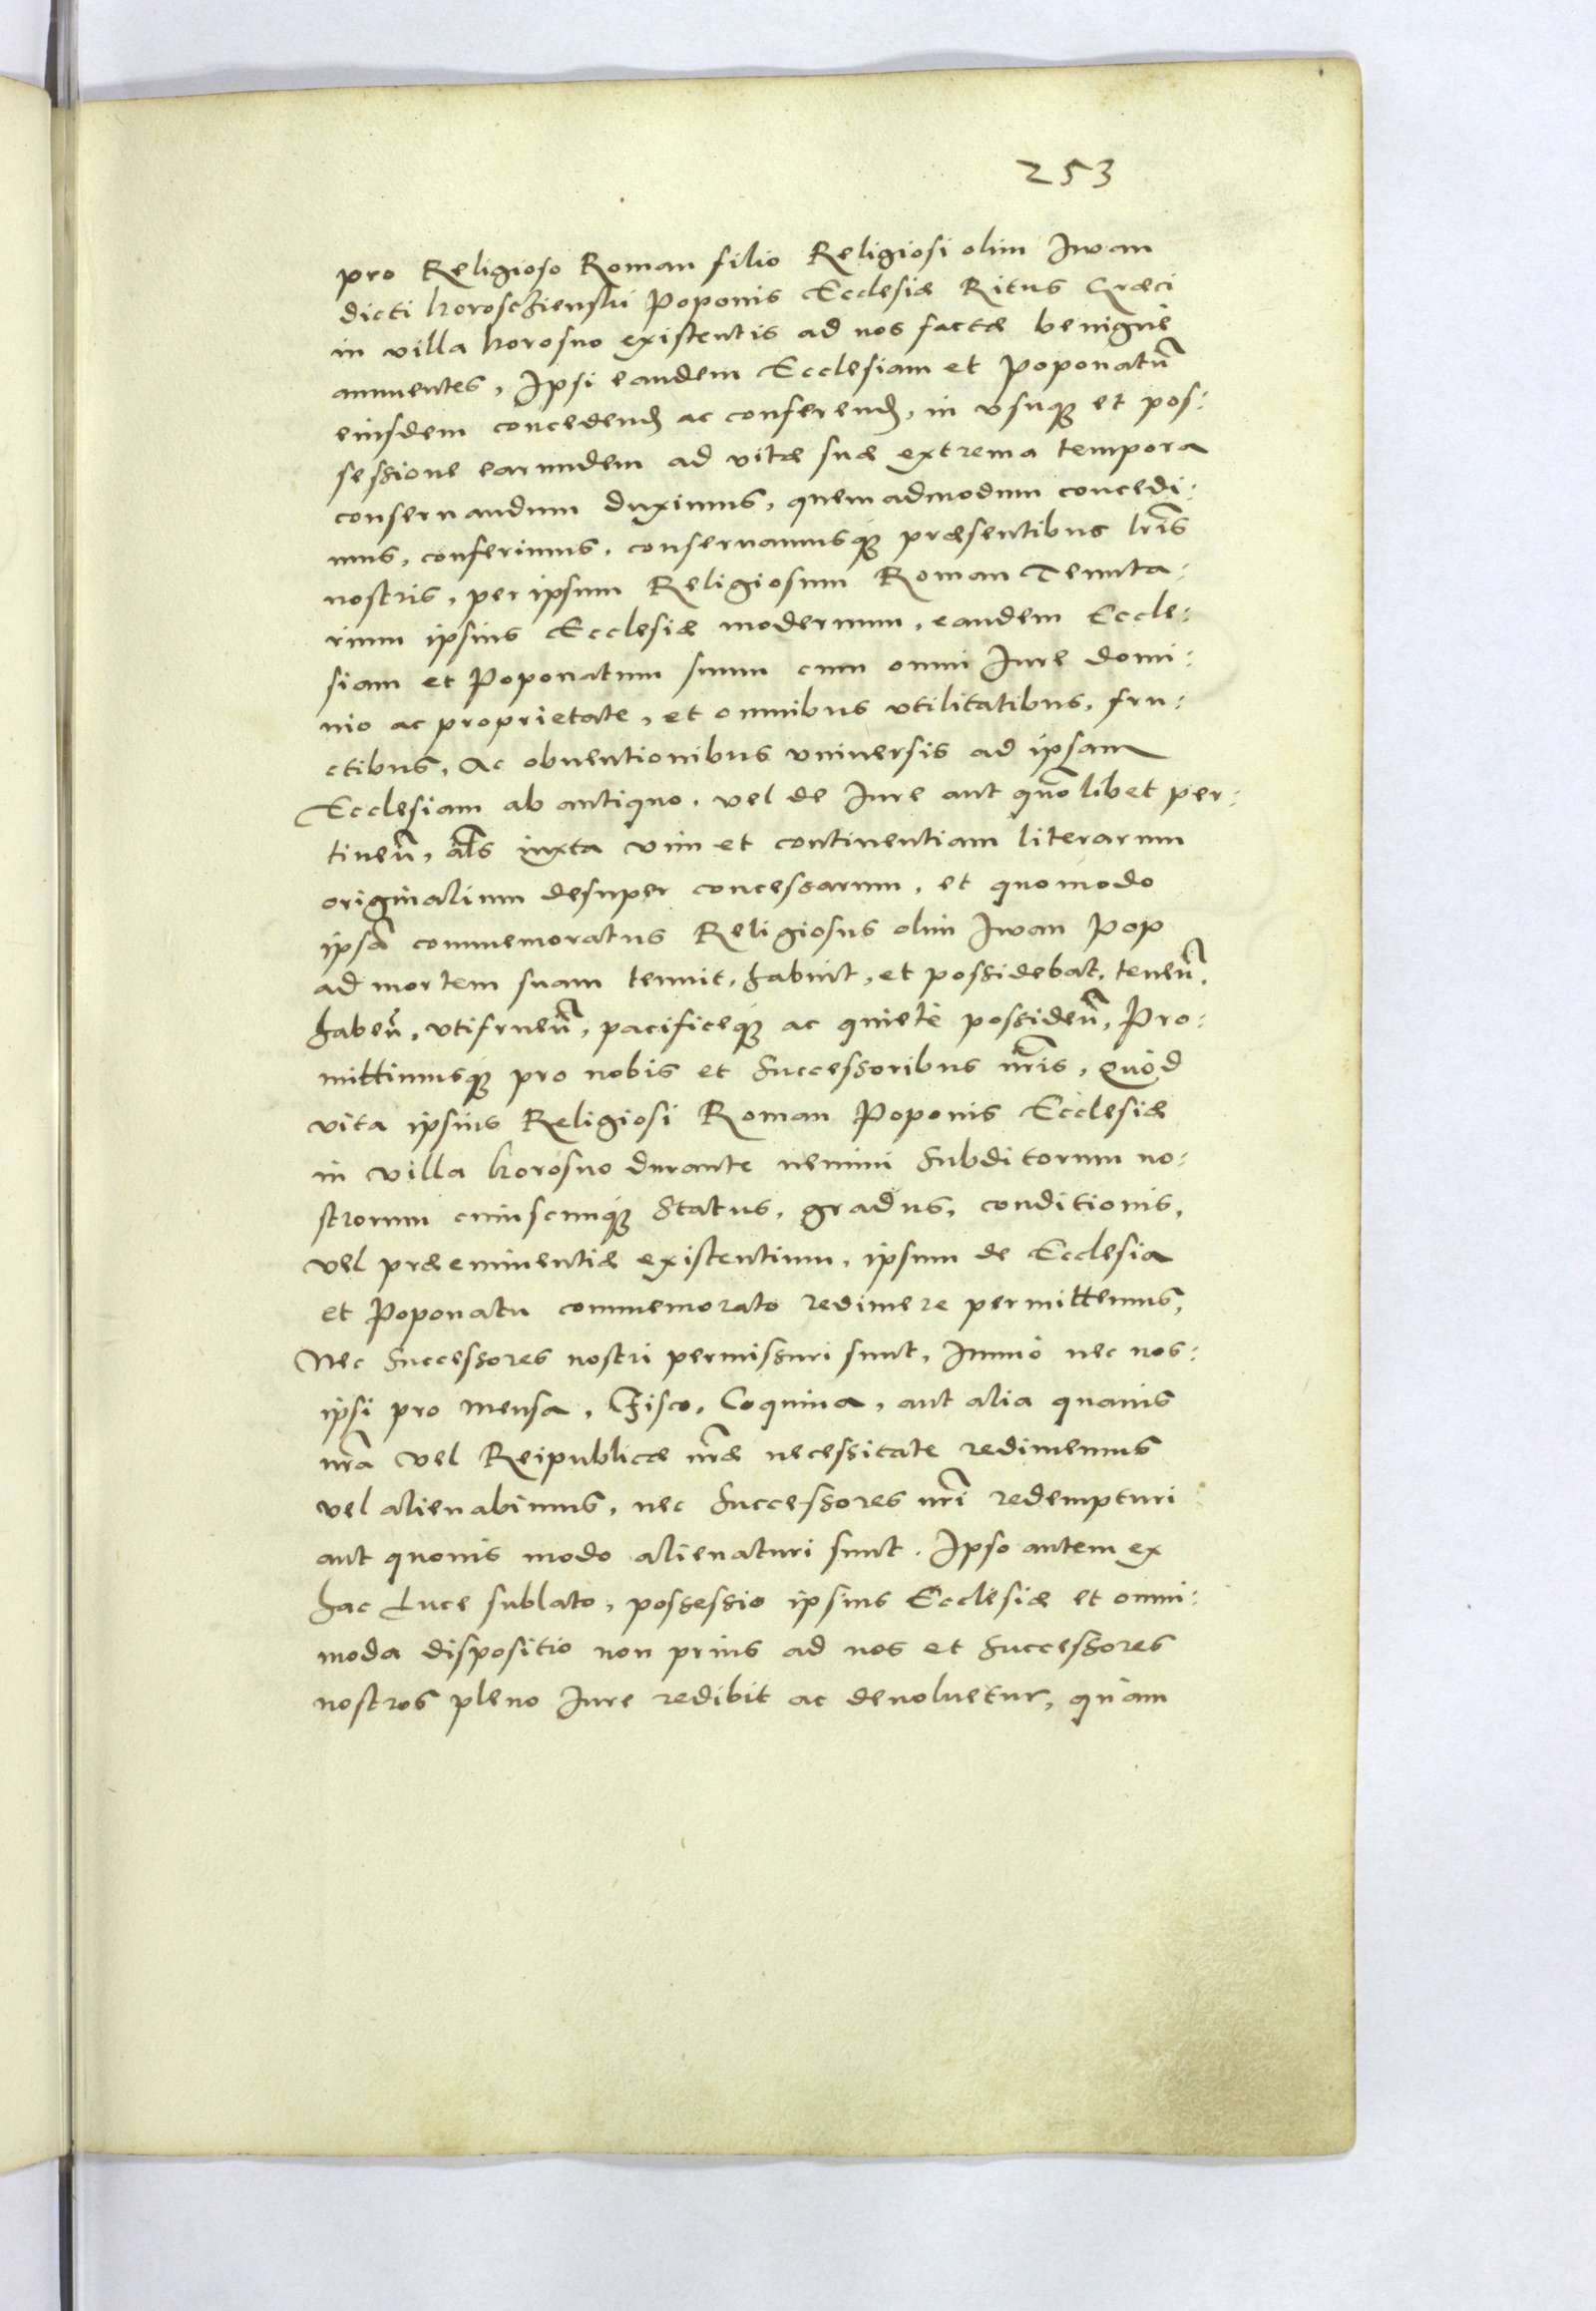 253
pro Religioso Roman filio Religiosi olim Iwan
dicti horoschienski Poponis Ecclesiæ Ritus Græci
in villa horosno existentis ad nos factæ benignè
annuentes, Ipsi eandem Ecclesiam et Poponatũ
eiusdem concedend ac conferend, in vsuq et pos:
sessione earundem ad vitæ suæ extrema tempora
conseruandum duximus, quemadmodum concedi:
mus, conferimus, conseruamusq præsentibus lr̃is
nostris, per ipsum Religiosum Roman Tenuta:
rium ipsius Ecclesiæ modernum, eandem Eccle:
siam et Poponatum suum cum omni Iure domi:
nio ac proprietate, et omnibus vtilitatibus, fru:
ctibus, Ac obuentionibus vniuersis ad ipsam
Ecclesiam ab antiquo, vel de Iure aut quõlibet per:
tineñ, al̃s iuxta vim et continentiam literarum
originalium desuper concessarum, et quomodo
ipsã commemoratus Religiosus olim Iwan Pop
ad mortem suam tenuit, habuit, et possidebat, teneñ,
habeñ, vtifrueñ, pacificeq ac quietè possideñ, Pro:
mittimusq pro nobis et Successoribus nr̃is, Quòd
vita ipsius Religiosi Roman Poponis Ecclesiæ
in villa horosno durante nemini Subditorum no:
strorum cuiuscunq Status, gradus, conditionis,
vel præeminentiæ existentium, ipsum de Ecclesia
et Poponatu commemorato redimere permittemus,
Nec Successores nostri permissuri sunt, Immò nec nos:
ipsi pro Mensa, Fisco, Coquina, aut alia quauis
nr̃a vel Reipublicæ nr̃æ necessitate redimemus
vel alienabimus, nec Successores nr̃i redempturi
aut quouis modo alienaturi sunt. Ipso autem ex
hac Luce sublato, possessio ipsius Ecclesiæ et omni:
moda dispositio non prius ad nos et Successores
nostros pleno Iure redibit ac deuoluetur, quàm